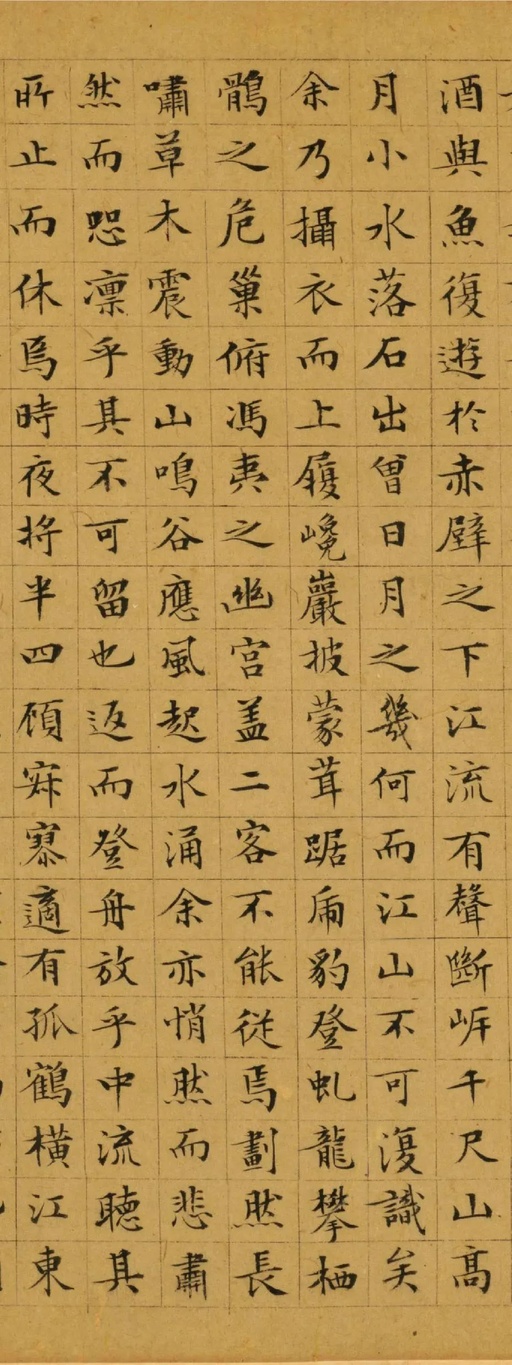 酒與魚復遊於赤壁之下江流有聲斷岸千尺山高
月小水落石出曾日月之幾何而江山不可復識矣
余乃攝衣而上履巉巖披蒙茸踞虎豹登虬龍攀栖
鶻之危巢俯馮夷之幽宮盖二客不能從焉劃然長
嘯草木震動山鳴谷應風起水涌余亦悄然而悲肅
然而恐凛乎其不可留也返而登舟放乎中流聽其
所止而休焉時夜將半四顧寂寥適有孤鶴橫江東